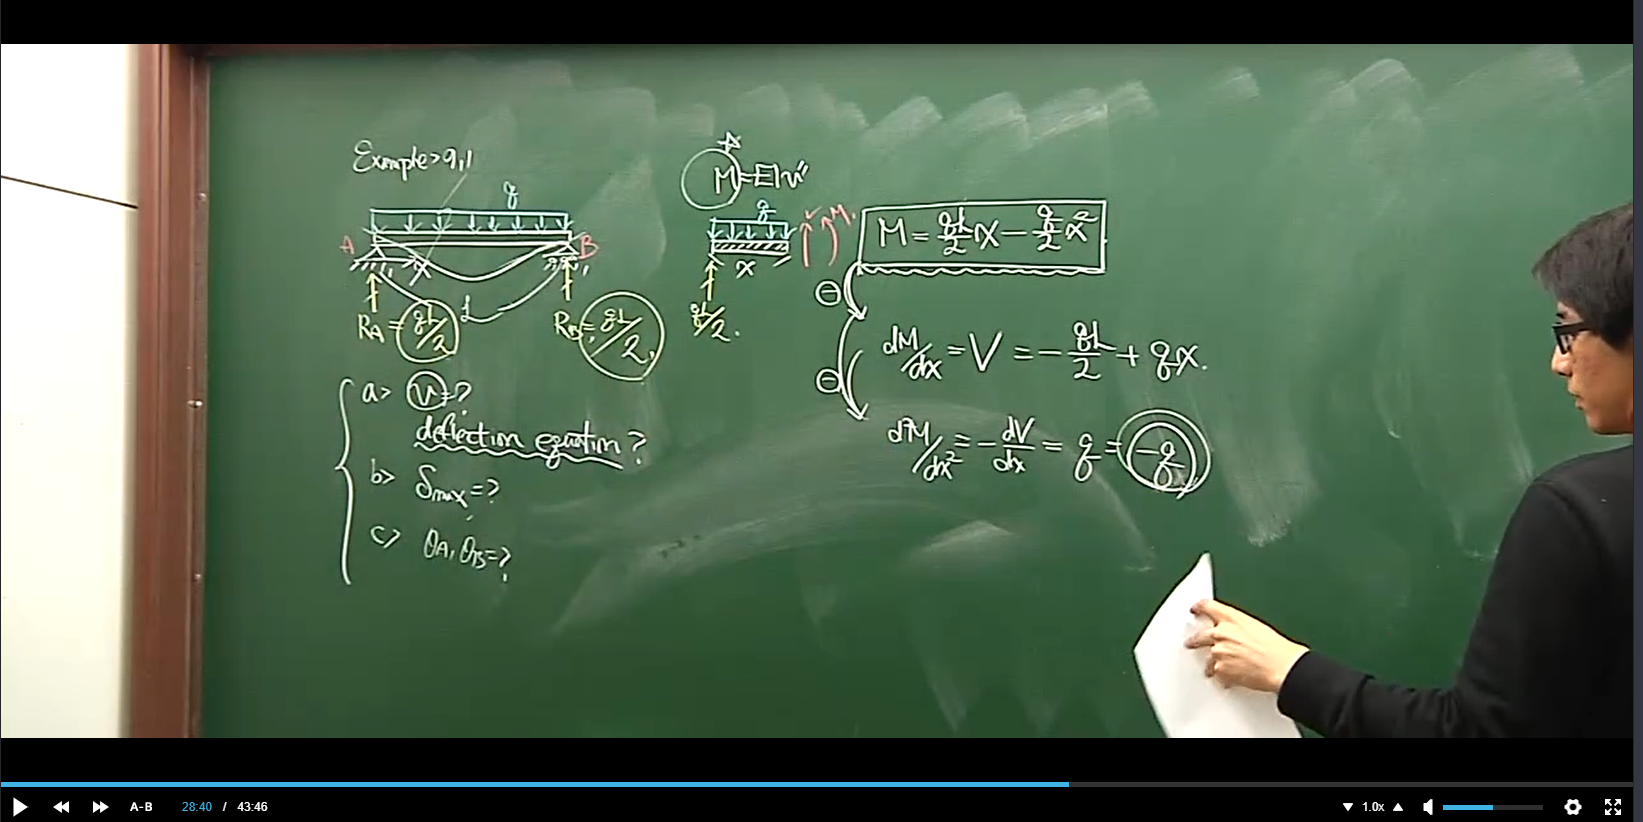 Example> 9.1
q
A
B
x
L
R_A = qL/2
R_B = qL/2
a> v = ?
deflection equation ?
b> δmax = ?
c> θA, θB = ?
M = EIv''
q
V M
x
qL/2.
M = qL/2 x − q/2 x²
⊖
dM/dx = V = − qL/2 + qx.
⊖
d²M/dx² = − dV/dx = q = −q
A-B
28:40 / 43:46
1.0x